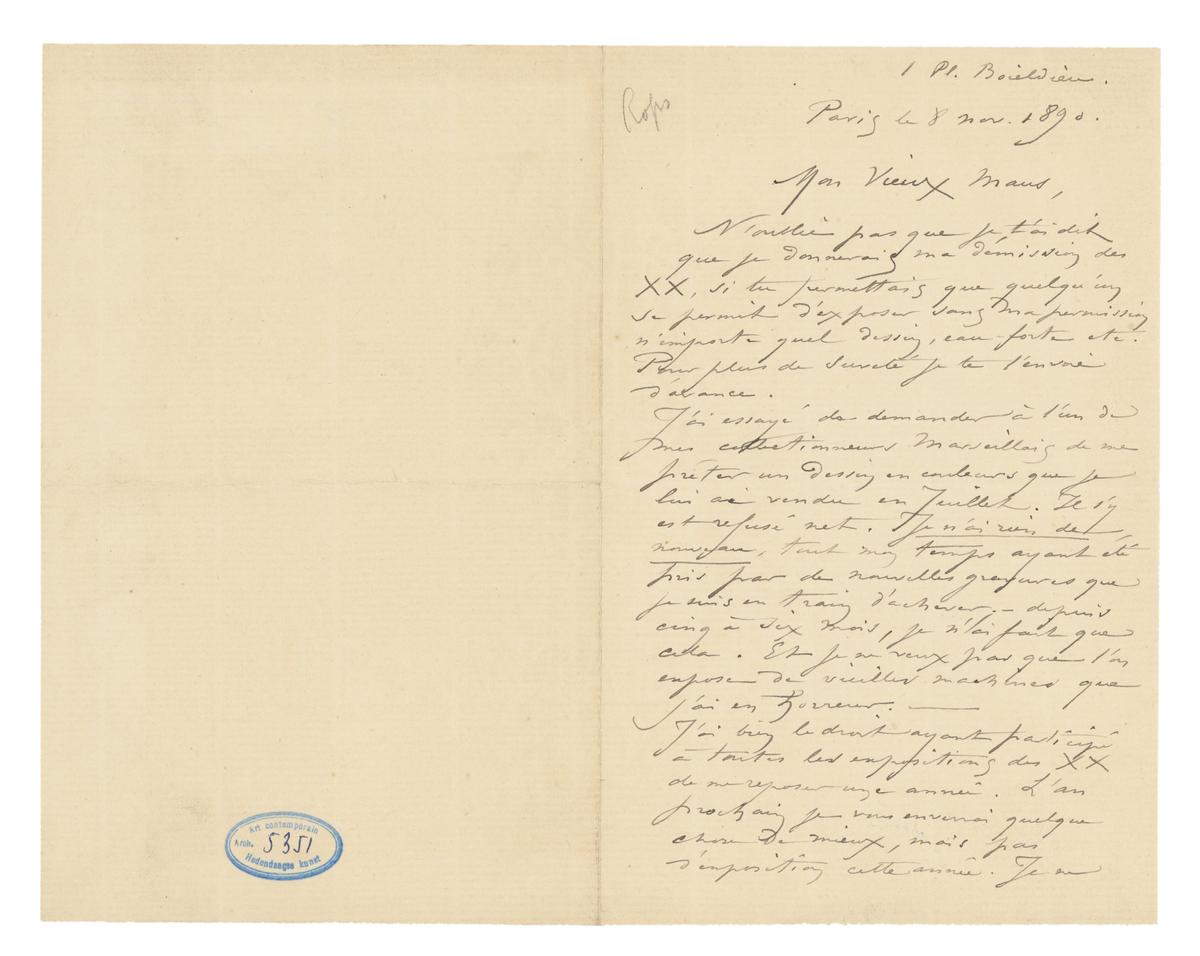 Art contemporain
Arch. 5351
Hedendaagse kunst
Rops
1 Pl. Boieldieu.
Paris le 8 nov. 1890.
Mon Vieux Maus,
N'oublie pas que je t'ai dit
que je donnerais ma démission des
XX, si tu permettais que quelqu'un
se permit d'exposer sans ma permission
n'importe quel dessin, eau-forte etc.
Pour plus de sureté je te l'envoie
d'avance.
J'ai essayé de demander à l'un de
mes collectionneurs Marseillais de me
prêter un Dessin en couleurs que je
lui ai vendu en Juillet. Il s'y
est refusé net. Je n'ai rien de
nouveau, tout mon temps ayant été
pris par de nouvelles gravures que
je suis en train d'achever, – depuis
cinq à six mois, je n'ai fait que
cela. Et je ne veux pas que l'on
expose de vieilles machines que
j'ai en horreur. —
J'ai bien le droit ayant participé
à toutes les expositions des XX
de me reposer une année. L'an
prochain je vous enverrai quelque
chose de mieux, mais pas
d'exposition cette année. Je ne